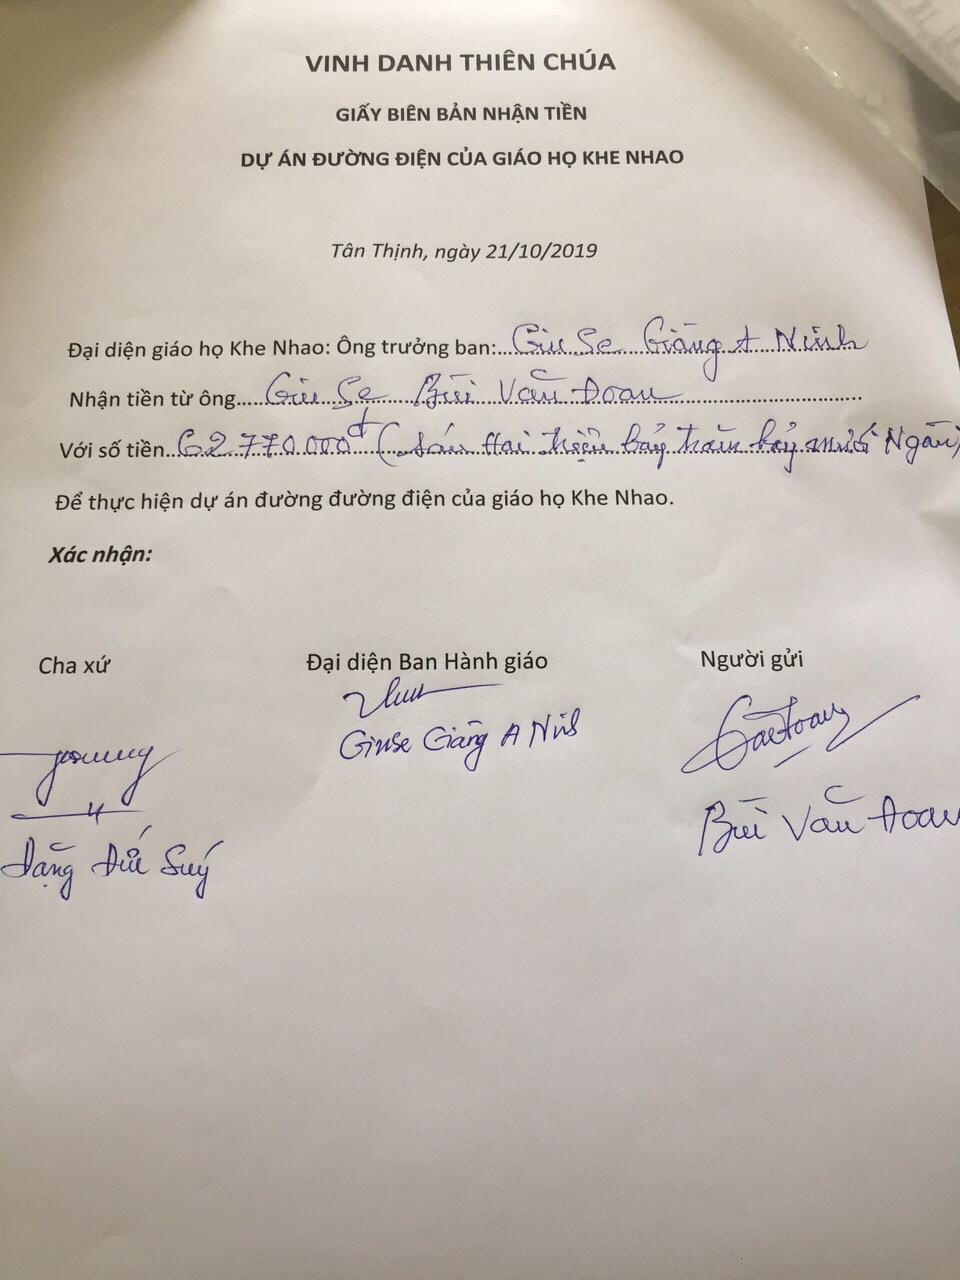 VINH DANH THIÊN CHÚA
GIẤY BIÊN BẢN NHẬN TIỀN
DỰ ÁN ĐƯỜNG ĐIỆN CỦA GIÁO HỌ KHE NHAO
Tân Thịnh, ngày 21/10/2019
Đại diện giáo họ Khe Nhao: Ông trưởng ban: Giu Se Giàng A Ninh
Nhận tiền từ ông Giu Se Bùi Văn Đoan
Với số tiền 62.770.000đ (Sáu Hai triệu bảy trăm bảy mươi Ngàn)
Để thực hiện dự án đường đường điện của giáo họ Khe Nhao.
Xác nhận:
Cha xứ Đại diện Ban Hành giáo Người gửi
Giuse Giàng A Ninh
Bùi Văn Đoan
Đặng Đức